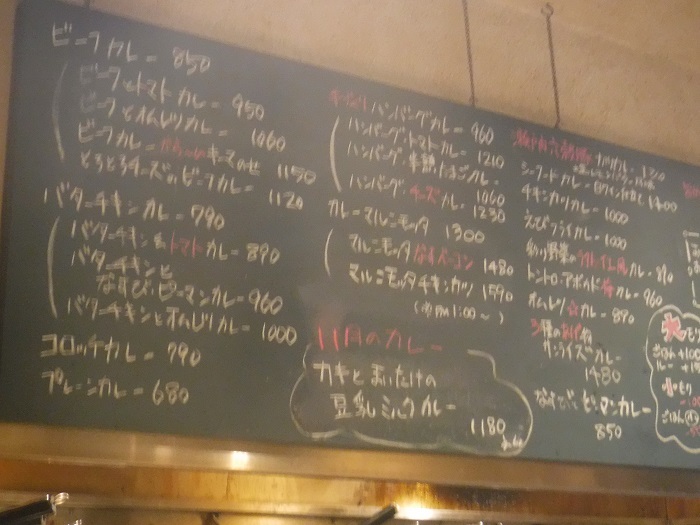 ビーフカレー 850
ビーフとトマトカレー 950
ビーフとオムレツカレー 1060
ビーフカレー キーマのせ 1150
とろとろチーズのビーフカレー 1120
バターチキンカレー 790
バターチキン&トマトカレー 890
バターチキンと
なすび・ピーマンカレー 960
バターチキンとオムレツカレー 1000
コロッケカレー 790
プレーンカレー 680
ハンバーグカレー 960
ハンバーグ・トマトカレー 1210
ハンバーグ・半熟たまごカレー 1060
ハンバーグ・チーズカレー 1230
カレーマルニモッタ 1300
マルニモッタなすベーコン 1480
マルニモッタチキンカツ 1590
11月のカレー
カキとまいたけの
豆乳ミルクカレー
1180
シーフードカレー
チキンカツカレー 1000
えびフライカレー 1000
彩り野菜の カレー
トントロ・アボカド カレー 960
オムレツ カレー 890
3種の
サンライズカレー
1480
なすびとピーマンカレー
850